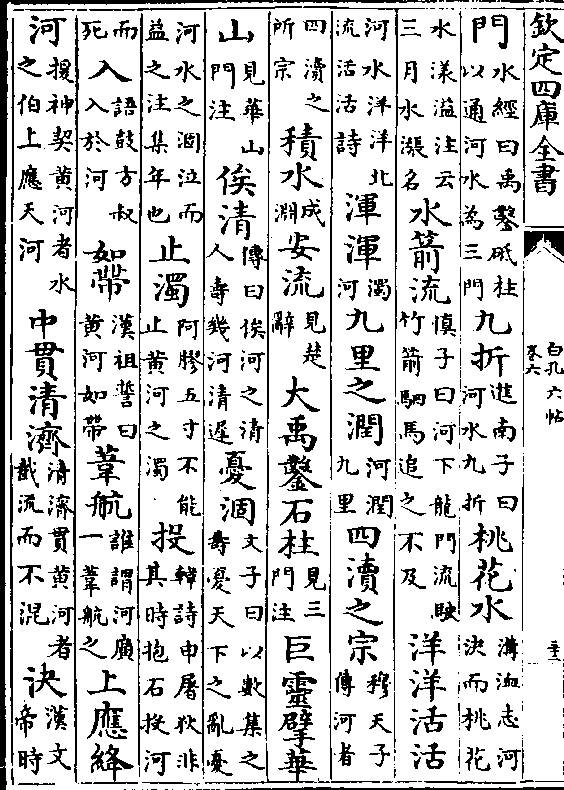 欽定四庫全書
白孔六帖
卷六
門水經曰禹鑿砥柱以通河水為三門九折淮南子曰河水九折桃花水溝洫志河決而桃花
水漾溢注云三月水漲名水箭流慎子曰河下龍門流駛竹箭駟馬追之不及洋洋活活
河水洋洋北流活活詩渾渾濁河九里之潤河潤九里四瀆之宗穆天子傳河者
四瀆之所宗積水成淵安流見楚辭大禹鑿石柱見三門注巨靈擘華
山見華山門注俟清傳曰俟河之清人壽幾河清遲憂涸文子曰以數集之壽憂天下之亂憂
河水之涸泣而益之注集年也止濁阿膠五寸不能止黃河之濁投韓詩申屠狄非其時抱石投河
而死入語鼓方叔入於河如帶漢祖誓曰黃河如帶葦航誰謂河廣一葦航之上應絳
河援神契黃河者水之伯上應天河中貫清濟清濟貫黃河者截流而不混決漢文帝時